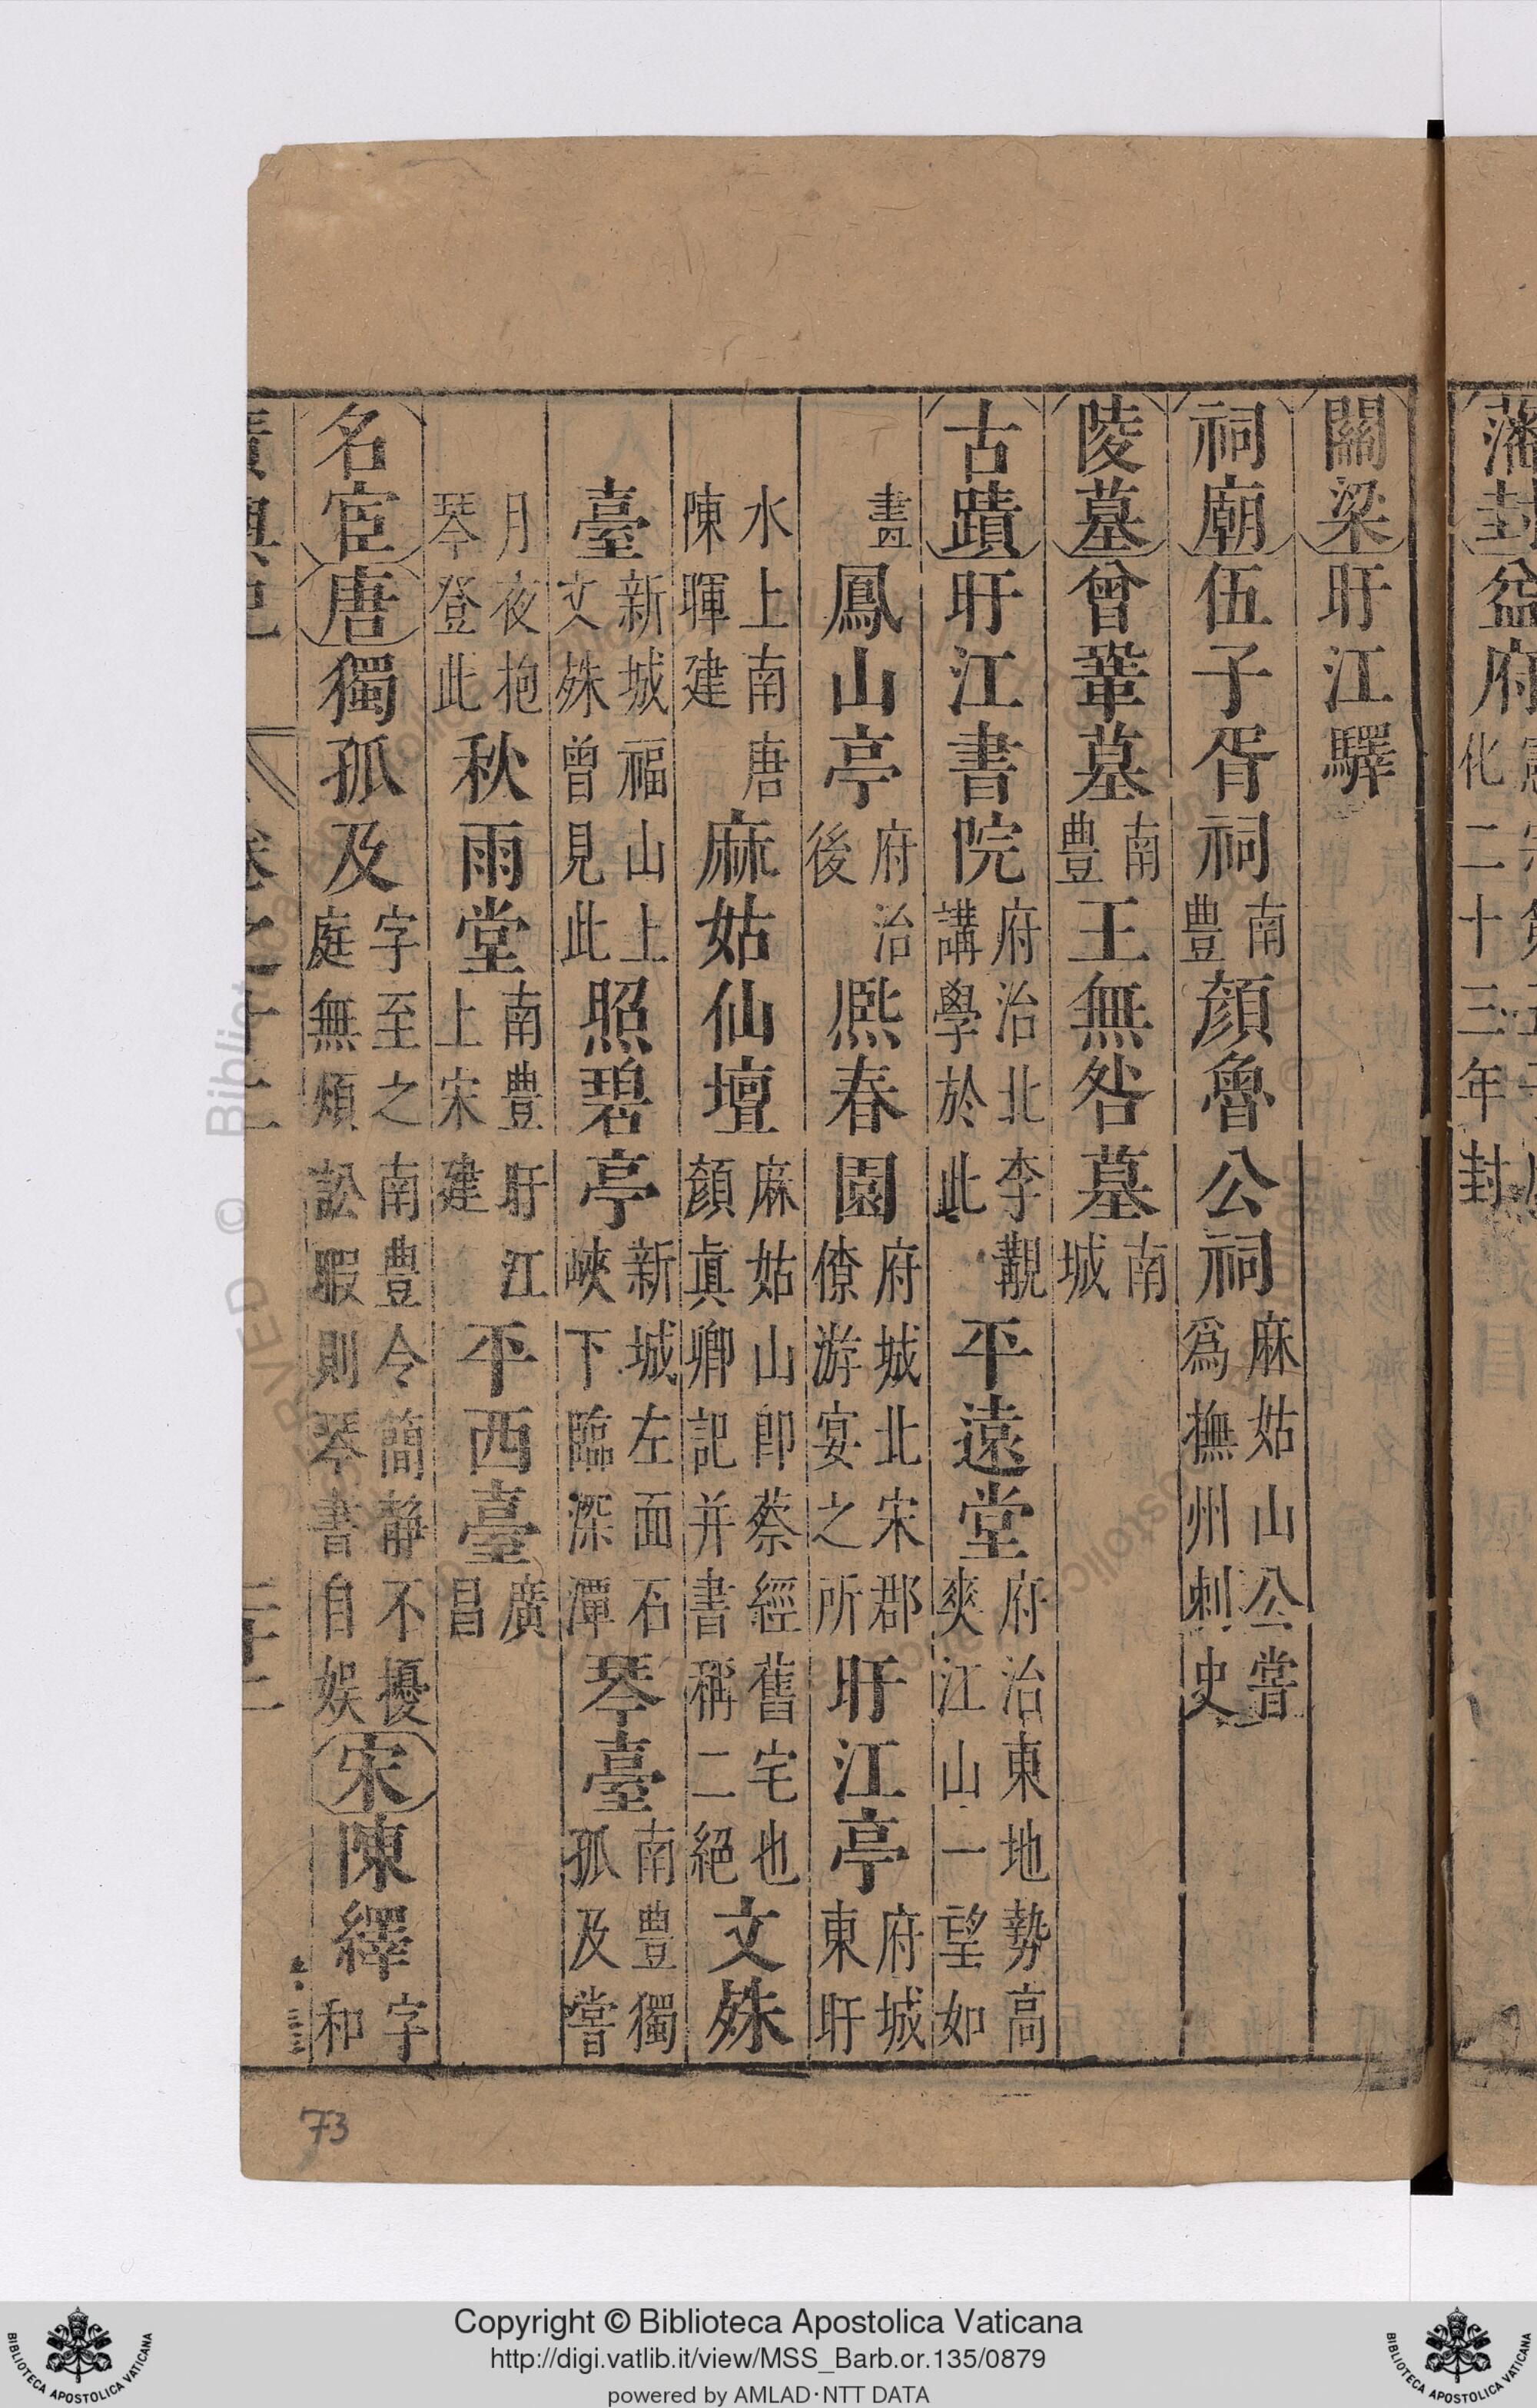 藩封益府化二十三年封
關梁盱江驛
祠廟伍子胥祠南豊顔魯公祠麻姑山公嘗爲撫州刺史
陵墓曾鞏墓南豊王無咎墓南城
古蹟盱江書院府治北李覯講學於此平遠堂府治東地勢高爽江山一望如
畫鳳山亭府治後熈春園府城北宋郡僚游宴之所盱江亭府城東盱
水上南唐陳暉建麻姑仙壇麻姑山卽蔡經舊宅也顔眞卿記并書稱二絕文殊
臺新城福山上文殊曾見此照碧亭新城左面石峽下臨深潭琴臺南豊獨孤及嘗
月夜抱琴登此秋雨堂南豊盱江上宋建平西臺廣昌
名宦唐獨孤及字至之南豊令簡静不擾庭無煩訟暇則琴書自娱宋陳繹字和
73
Copyright © Biblioteca Apostolica Vaticana
http://digi.vatlib.it/view/MSS_Barb.or.135/0879
powered by AMLAD·NTT DATA